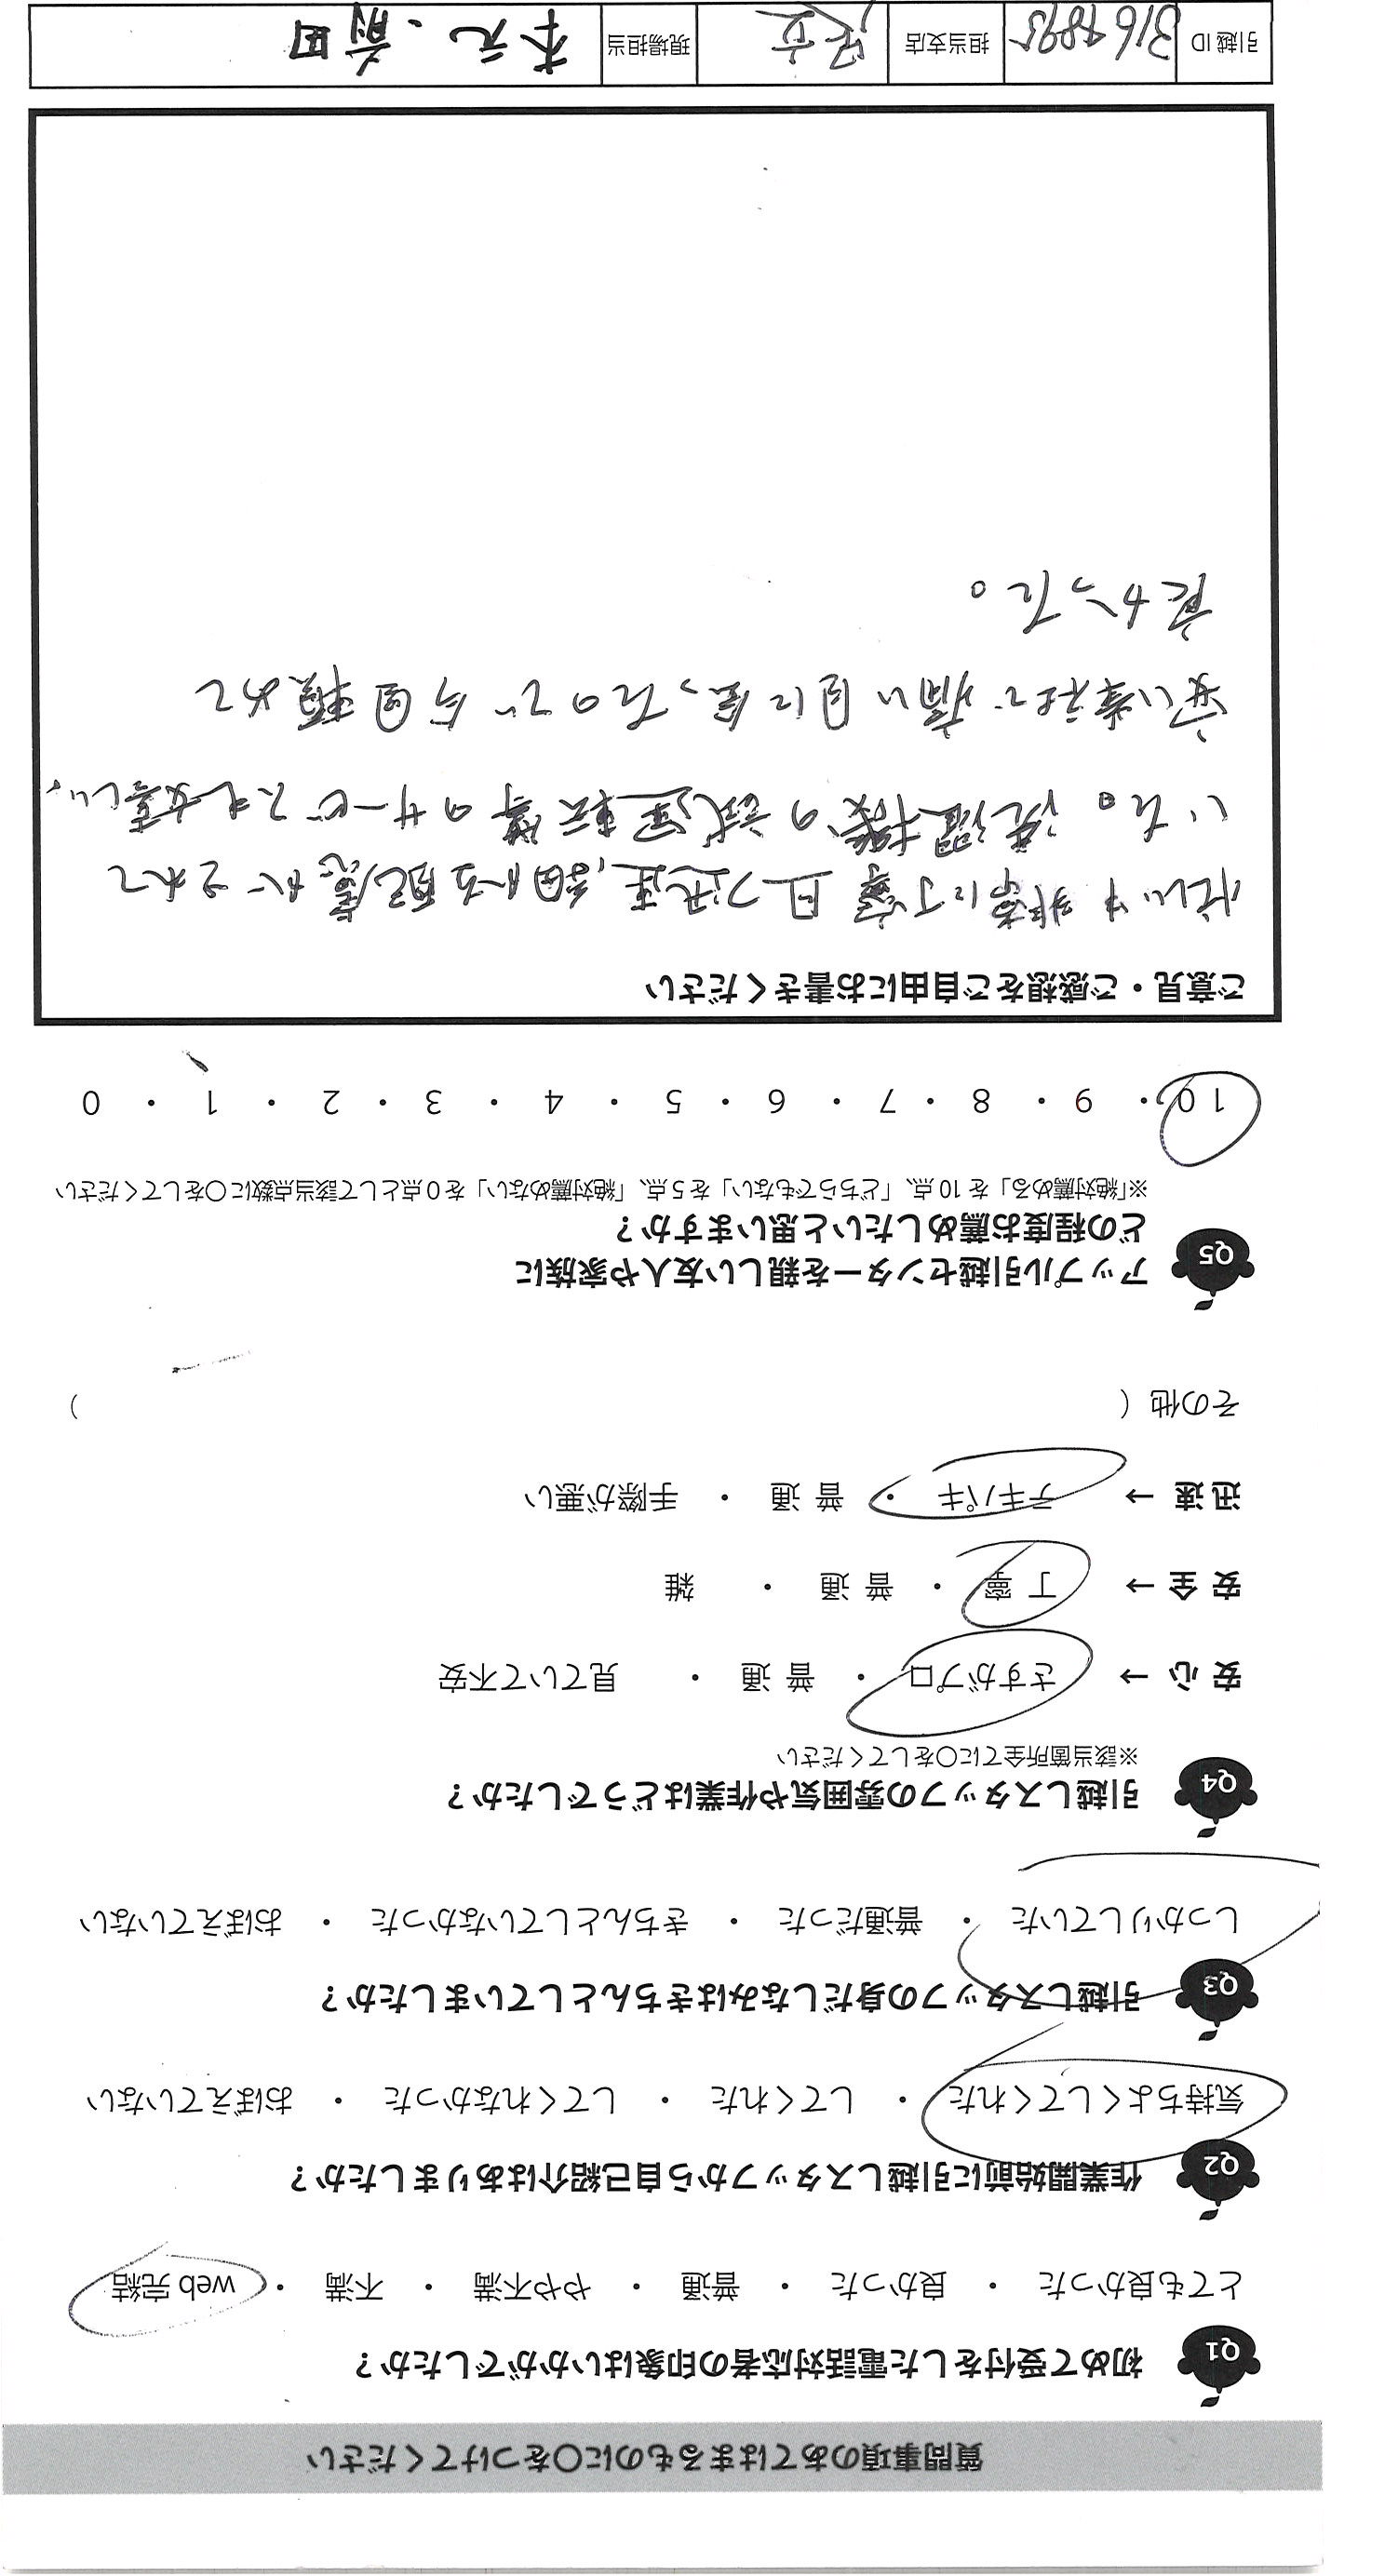 質問事項のあてはまるものに○をつけてください
Q1 初めて受付をした電話対応者の印象はいかがでしたか？
とても良かった ・ 良かった ・ 普通 ・ やや不満 ・ 不満 ・ web 完結
Q2 作業開始前に引越しスタッフから自己紹介はありましたか？
気持ちよくしてくれた ・ してくれた ・ してくれなかった ・ おぼえていない
Q3 引越しスタッフの身だしなみはきちんとしていましたか？
しっかりしていた ・ 普通だった ・ きちんとしていなかった ・ おぼえていない
Q4 引越しスタッフの雰囲気や作業はどうでしたか？
※該当箇所全てに○をしてください
安心 → さすがプロ ・ 普通 ・ 見ていて不安
安全 → 丁寧 ・ 普通 ・ 雑
迅速 → テキパキ ・ 普通 ・ 手際が悪い
その他（ ）
Q5 アップル引越センターを親しい友人や家族に
どの程度お薦めしたいと思いますか？
※「絶対薦める」を10点、「どちらでもない」を5点、「絶対薦めない」を0点として該当点数に○をしてください
10 ・ 9 ・ 8 ・ 7 ・ 6 ・ 5 ・ 4 ・ 3 ・ 2 ・ 1 ・ 0
ご意見・ご感想をご自由にお書きください
忙しい中非常に丁寧且つ迅速、細かな配慮がされて
いた。洗濯機の試運転等のサービスも嬉しい。
安い業社で痛い目に会ったので今回頼めて
良かった。
引越ID 担当支店 足立 現場担当 本元、前田